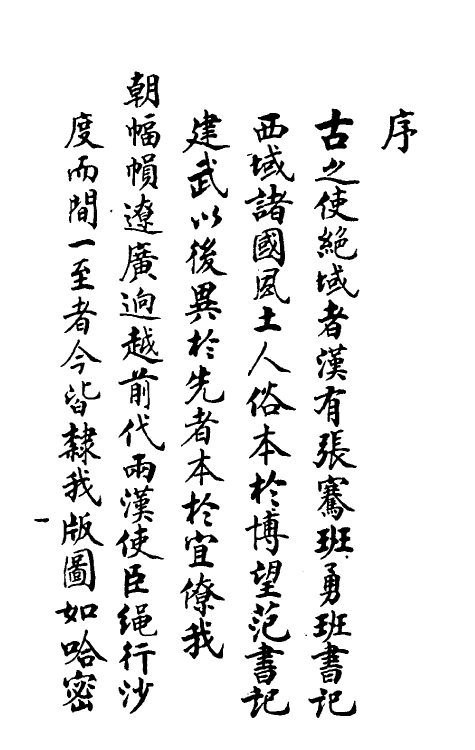 序
古之使絶域者漢有張騫班勇班書記
西域諸國風土人俗本於博望范書記
建武以後異於先者本於宜僚我
朝幅幀遼廣逈越前代兩漢使臣繩行沙
度而間一至者今皆隸我版圖如哈密
一